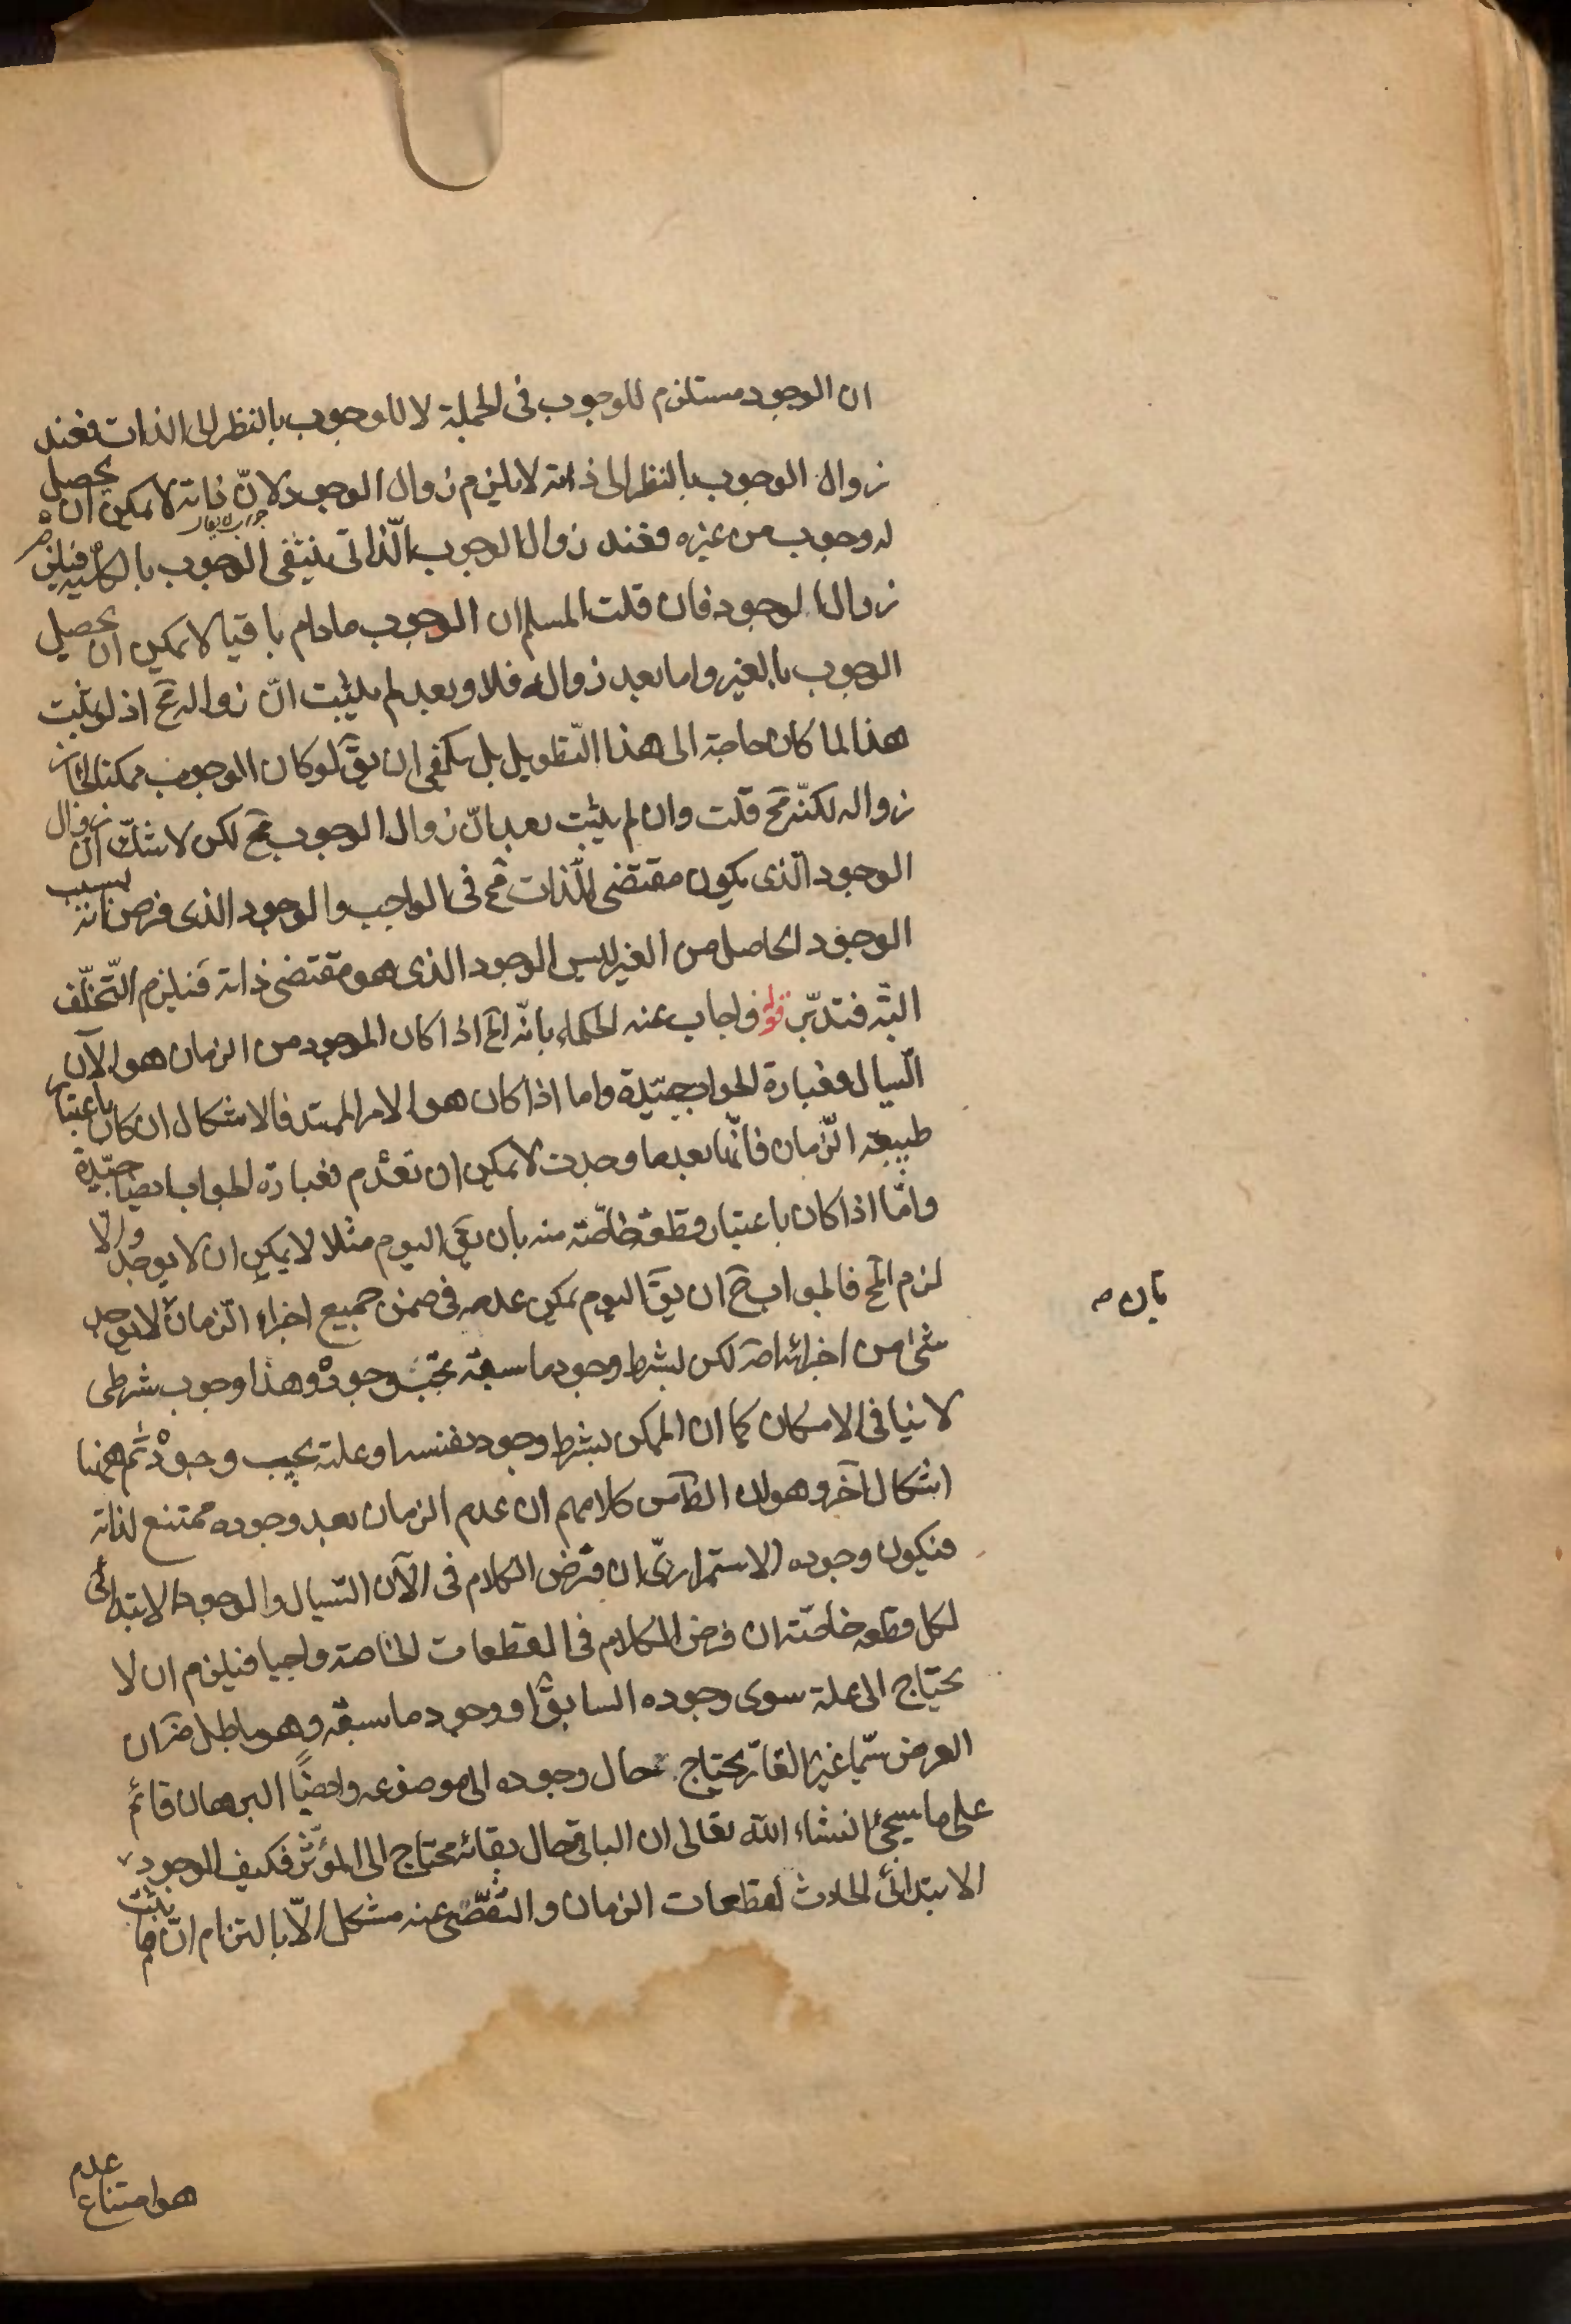 ان الوجود مستلزم للوجوب فى الجملة لا للوجوب بالنظر الى الذات فعند
زوال الوجوب بالنظر الى ذاته لا يلزم زوال الوجود لانّ ذاته لا يمكن ان يحصل
له وجوب من غيره فعند زوال الوجوب الّذاتى ينتفى الوجوب بالكلية فيلزم
زوال الوجود فان قلت المسلم ان الوجوب مادام باقيا لا يمكن ان يحصل
الوجوب بالغير واما بعد زواله فلا وبعد لم يثبت انّ زواله مح اذ لو يثبت
هذا لما كان حاجة الى هذا التّطويل بل يكفى ان يقَ لو كان الوجوب ممكنا لجاز
زواله لكنّه مح قلت وان لم يثبت بعد انّ زوال الوجوب مح لكن لا شكّ ان زوال
الوجود الّذى يكون مقتضى للذات مح فى الواجب والوجود الذى فرض ثابته بسبب
الوجود الحاصل من الغير ليس الوجود الذى هو مقتضى ذاته فيلزم التّخلّف
البتّه فتدبّر قوله فاجاب عنه الحكماء بانّه الخ اذا كان الموجود من الزمان هو الآن
السّيال فعبارة الجواب جيّدة واما اذا كان هو الامر الممتد فالاشكال ان كان باعتبار
طبيعة الزّمان فانّها بعد ما وجدت لا يمكن ان تعدم فعبارة الجواب ايضا جيّدة
وامّا اذا كان باعتبار قطعة خاصّة منه بان يقَ اليوم مثلا لا يمكن ان لا يوجد والّا
لزم المح فالجواب ح ان يقَ اليوم يمكن عدمه فى ضمن جميع اجزاء الزّمان لا يوجد
بان صح
شئ من اجزائه اصلا لكن بشرط وجود ما سبقه يجب وجوده وهذا وجوب شرطى
لا ينافى الامكان كما ان الممكن بشرط وجود نفسه او علته يجب وجوده ثم ههنا
اشكال آخر وهو ان الظّاهر من كلامهم ان عدم الزمان بعد وجوده ممتنع لذاته
فيكون وجوده الاستمرارىّ ان فرض الكلام فى الآن السّيال والوجود الابتدائى
لكل قطعه خاصّة ان فرض الكلام فى القطعات الخاصة واجبا فيلزم ان لا
يحتاج الى علة سوى وجوده السابق او وجود ما سبقه وهو باطل ضرورة ان
العرض سيّما غير القارّ يحتاج حال وجوده الى موضوعه وايضًا البرهان قائم
على ما سيجئ انشاء الله تعالى ان الباقى حال بقائه محتاج الى المؤثّر فكيف الوجود
الابتدائى الحادث لقطعات الزمان والتفصّى عنه مشكل الّا بالتزام انّ ما يثبت
عدم
هو امتناع